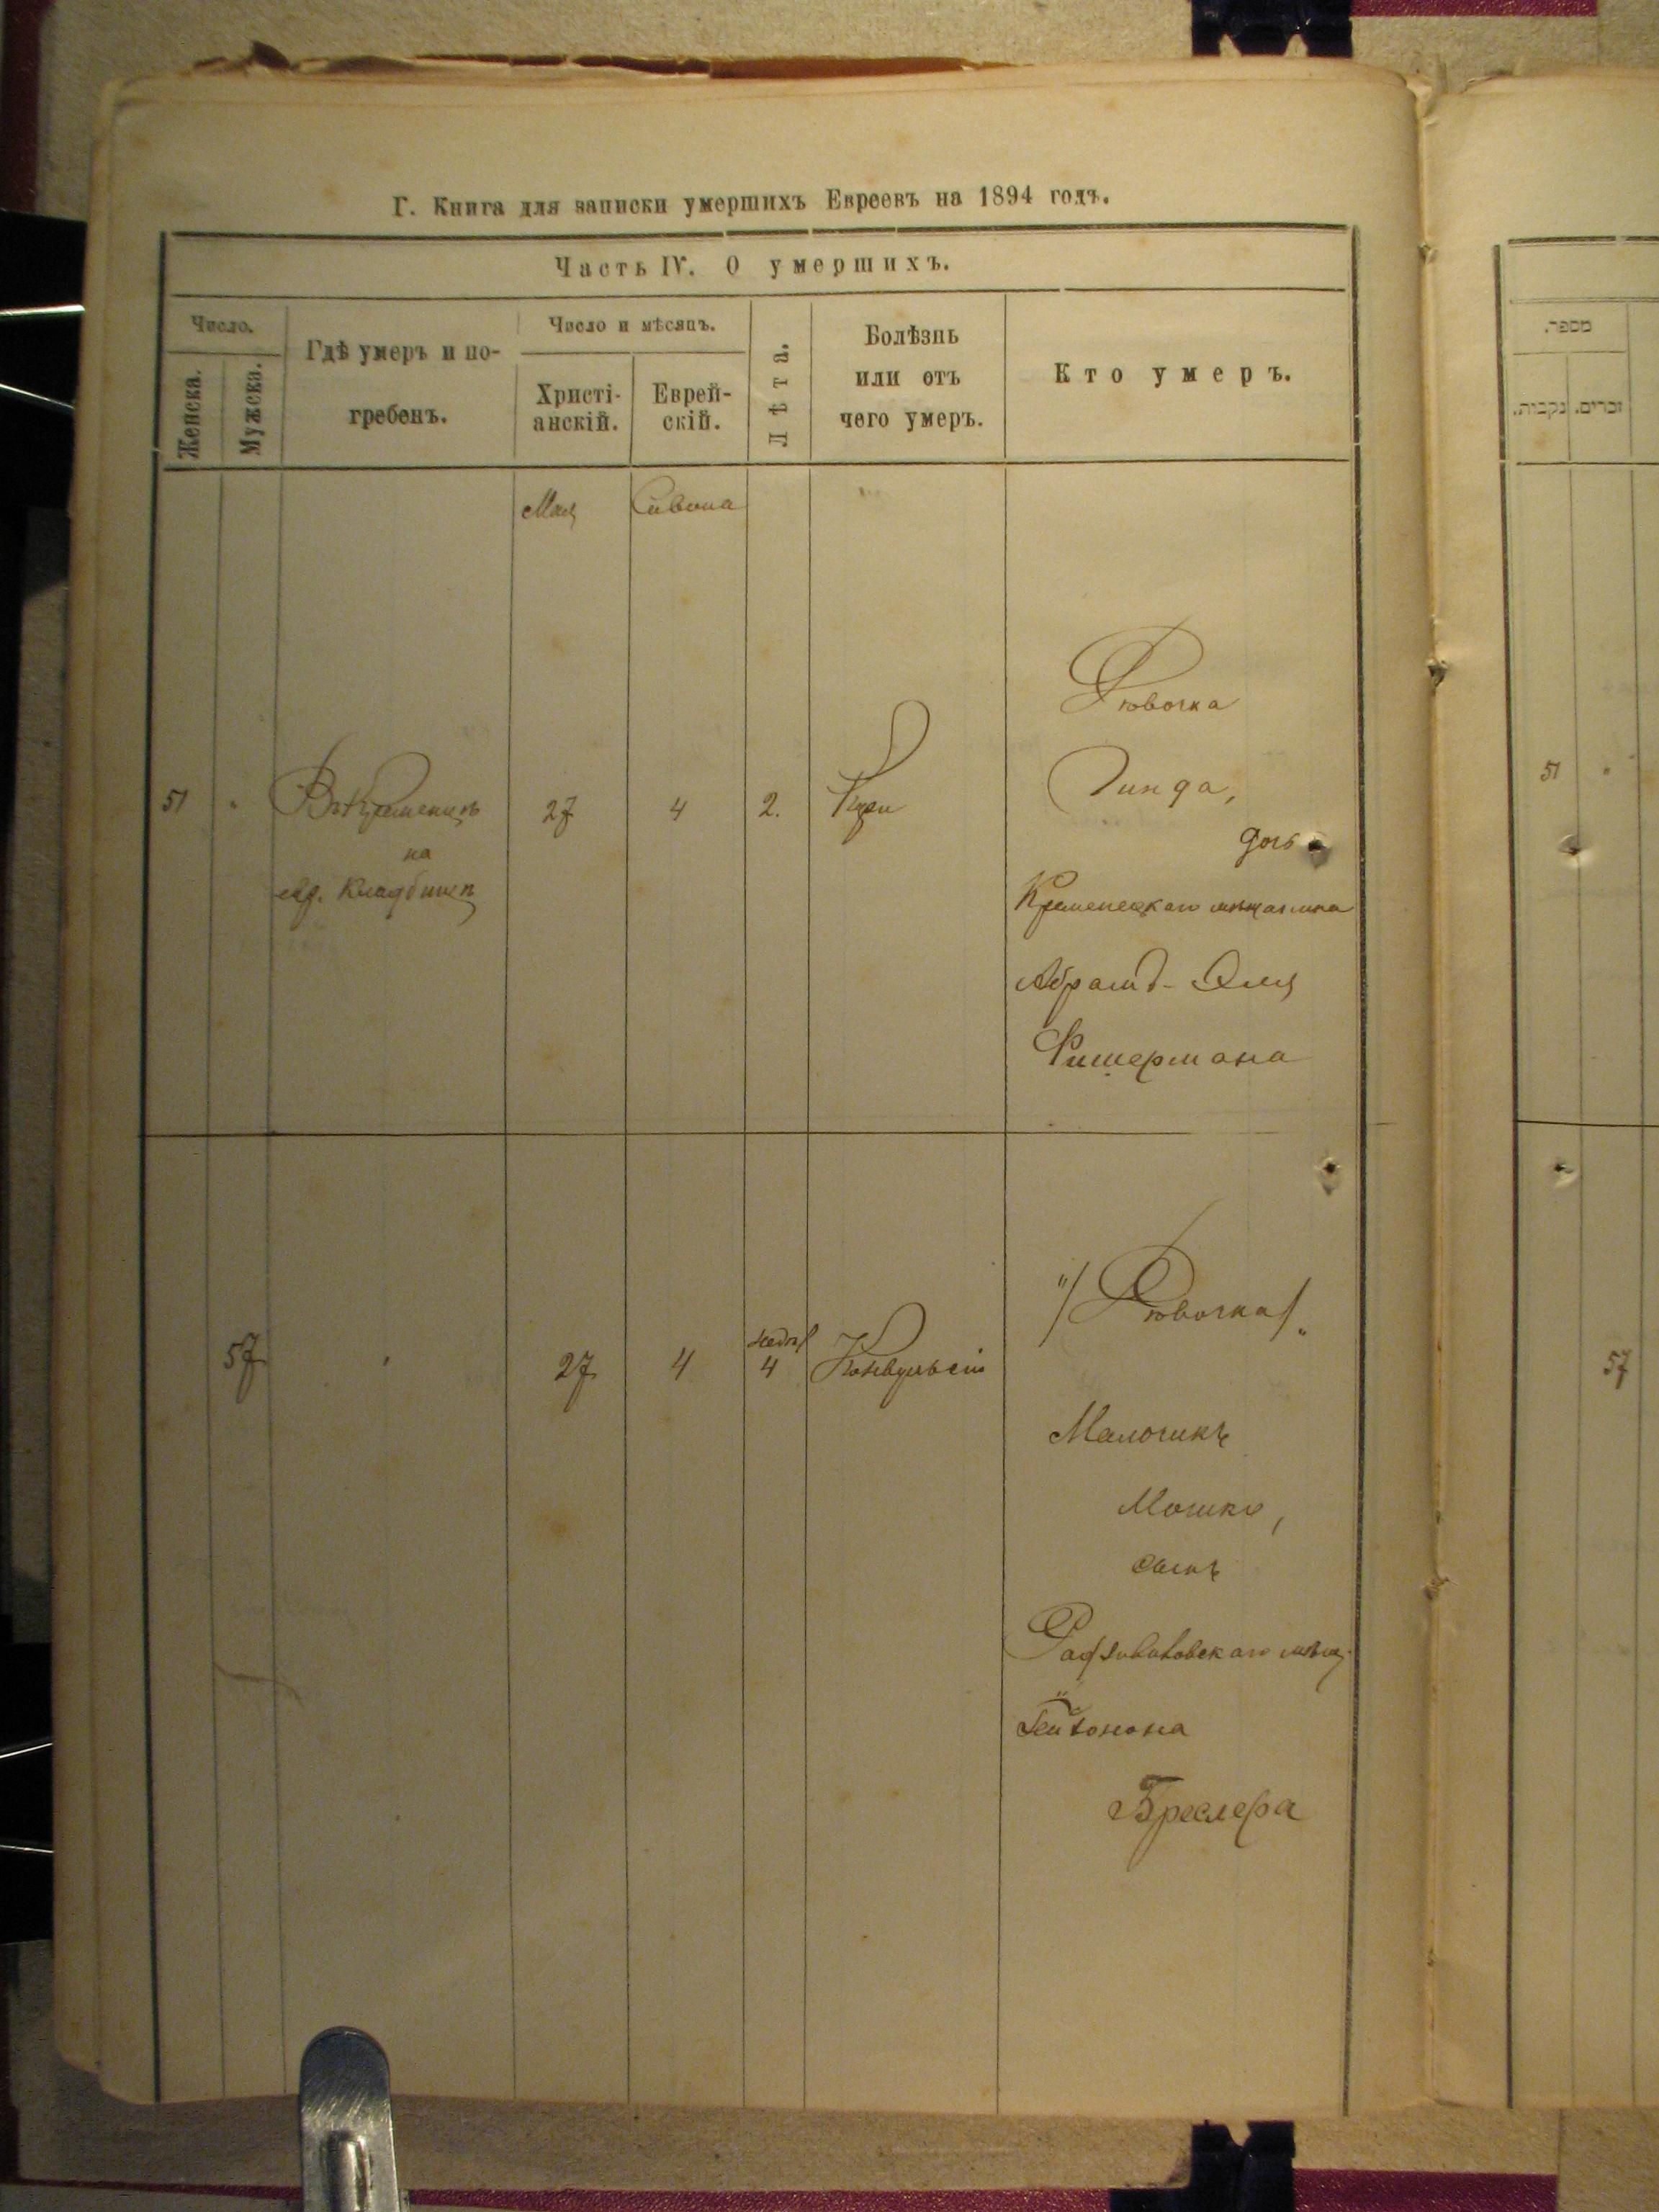 Г. Книга для записки умершихъ Евреевъ на 1894 годъ.
Часть IV. О умершихъ.
Число.
Женска.
Мужска.
Гдѣ умеръ и по-
гребенъ.
Число и мѣсяцъ.
Христі-
анскій.
Еврей-
скій.
Лѣта.
Болѣзнь
или отъ
чего умеръ.
Кто умеръ.
Мая
Сивона
51
"
Въ Кременцѣ
на
евр. кладбищѣ
27
4
2.
Кори
Дѣвочка
Гинда,
дочь
Кременецкаго мѣщанина
Абрамъ-Эля
Фишермана
57
"
27
4
недѣл
4
Конвульсіи
"/Дѣвочка/"
Мальчикъ
Мошко,
сынъ
мѣщ.
Бреслера
מספר.
נקבות.
זכרים.
51
"
57